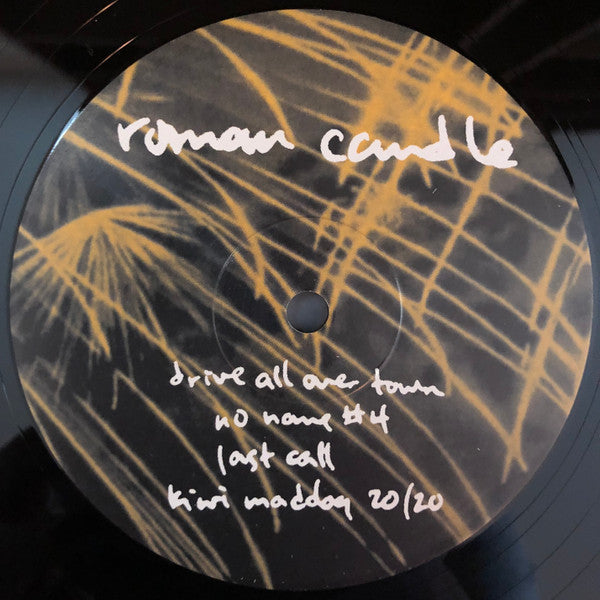 roman candle
drive all over town
no name #4
last call
kiwi maddog 20/20